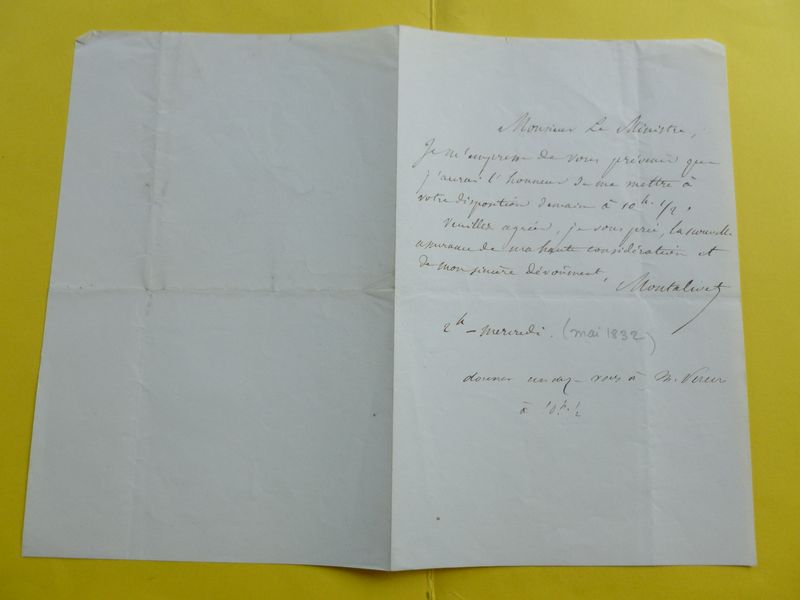 Monsieur Le Ministre,
Je m'empresse de vous prévenir que
j'aurai l'honneur de me mettre à
votre disposition demain à 10h. 1/2.
Veuillez agréer, je vous prie, la nouvelle
assurance de ma haute considération et
de mon sincère dévoûment,
Montalivet
2h - mercredi. (mai 1832)
donner rendez-vous à M.
à 10h. 1/2